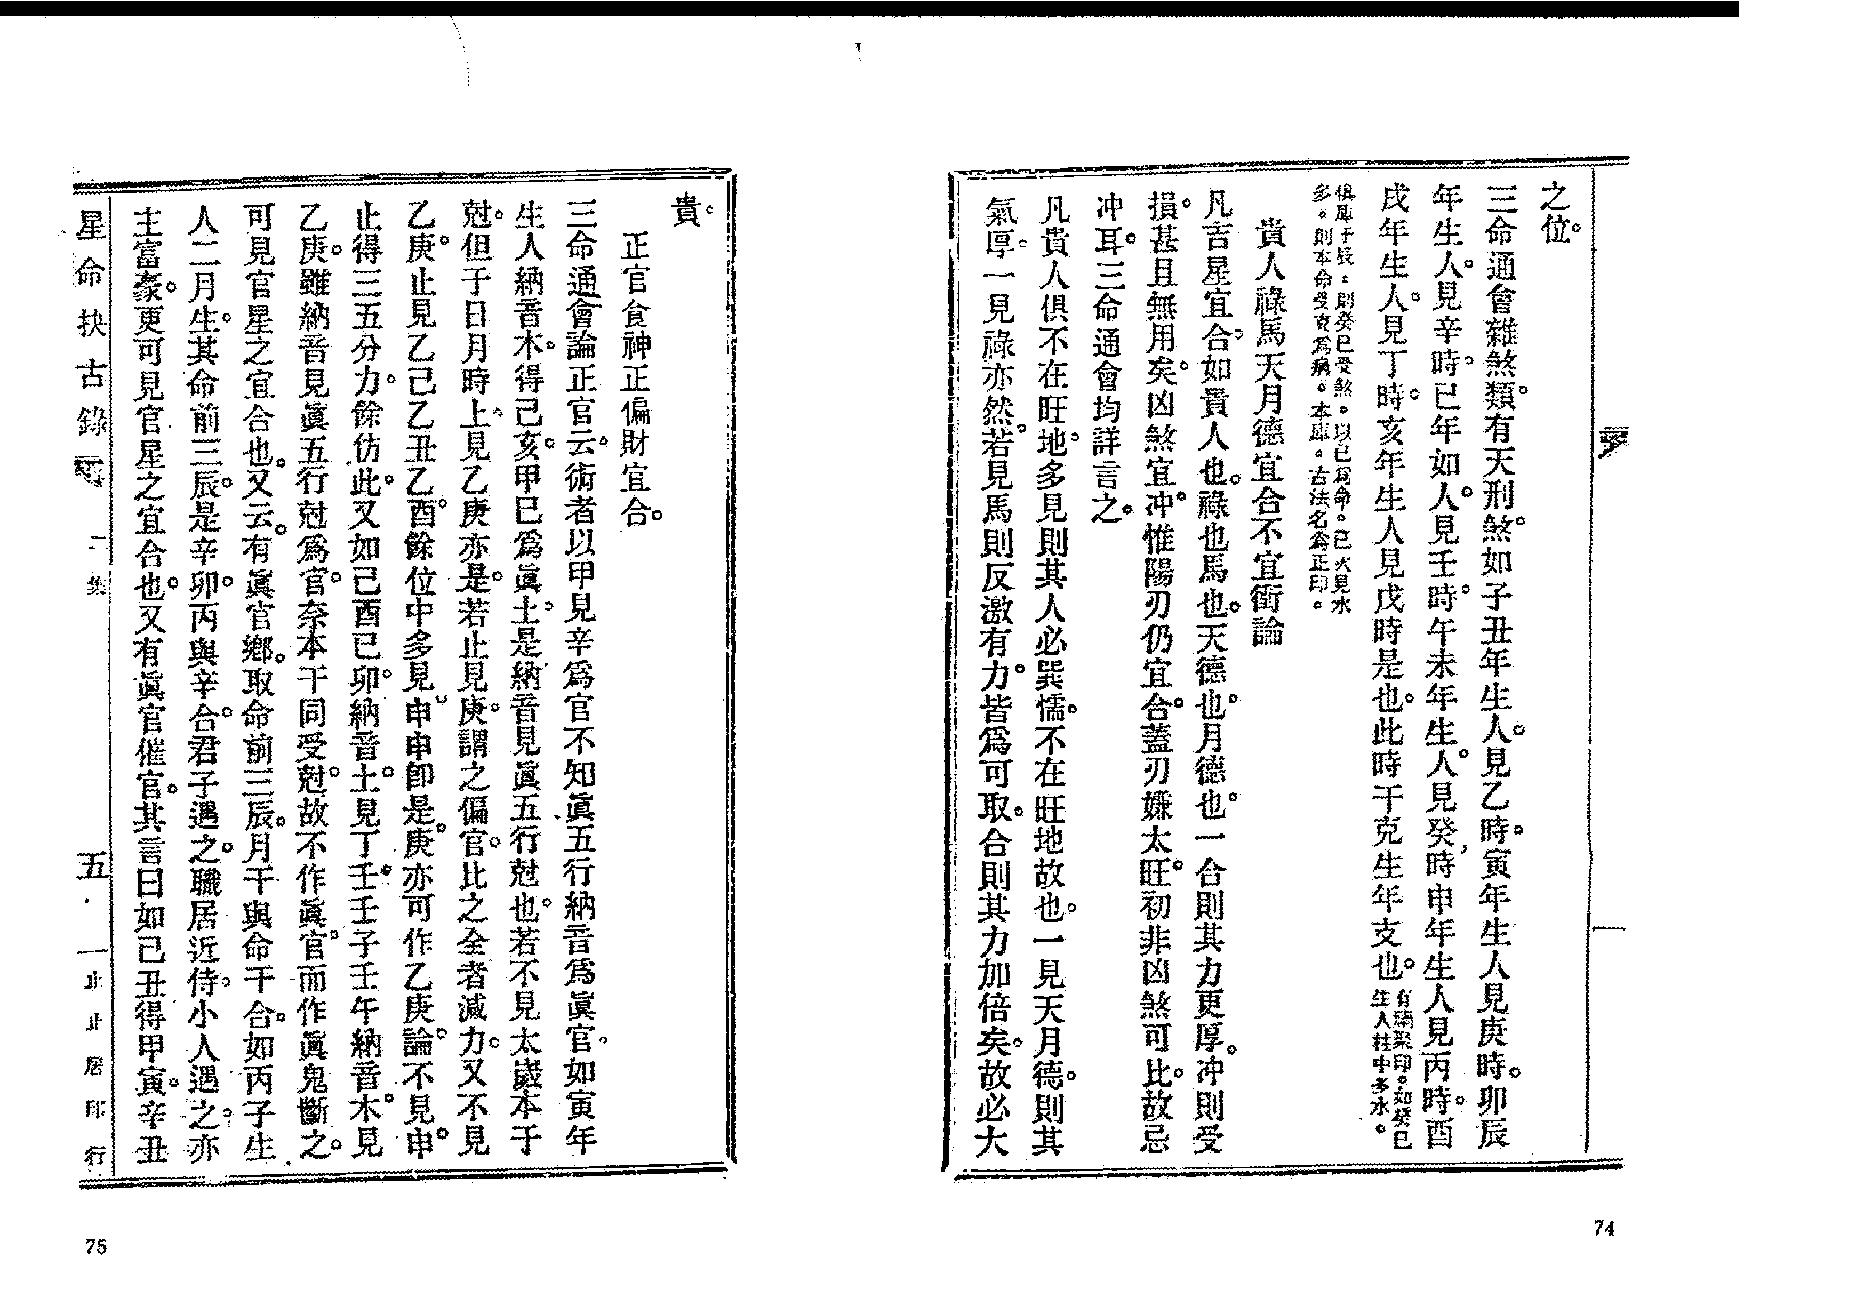 之位。
三命通會雜煞類。有天刑煞。如子丑年生人。見乙時。寅年生人見庚時。卯辰
年生人。見辛時。巳年如人。見壬時。午未年生人。見癸時。申年生人見丙時。酉
戌年生人。見丁時。亥年生人見戊時是也。此時干克生年支也。有病聚印。如癸巳
生人柱中多水。
俱庫于辰。則癸巳受煞。以巳爲命。巳火見水
多。則本命受克爲病。本庫。古法名爲正印。
貴人祿馬天月德宜合不宜衝論
凡吉星宜合。如貴人也。祿也馬也。天德也。月德也。一合則其力更厚。冲則受
損。甚且無用矣。凶煞宜冲。惟陽刃仍宜合。蓋刃嫌太旺。初非凶煞可比。故忌
冲耳。三命通會均詳言之。
凡貴人俱不在旺地。多見則其人必巽懦。不在旺地故也。一見天月德。則其
氣厚。一見祿亦然。若見馬則反激有力。皆爲可取。合則其力加倍矣。故必大
74
貴。
正官食神正偏財宜合。
三命通會論正官云。術者以甲見辛爲官不知眞五行納音爲眞官。如寅年
生人納音木。得己亥。甲巳爲眞土。是納音見眞五行尅也。若不見太歲本于
尅。但于日月時上。見乙庚亦是。若止見庚。謂之偏官。比之全者減力。又不見
乙庚。止見乙己乙丑乙酉。餘位中多見申。申卽是庚。亦可作乙庚論。不見申。
止得三五分力。餘仿此。又如己酉已卯。納音土。見丁壬。壬子壬午納音木。見
乙庚。雖納音見眞五行尅爲官。奈本干同受尅。故不作眞官。而作眞鬼斷之。
可見官星之宜合也。又云。有眞官鄉。取命前三辰。月干與命干合。如丙子生
人二月生。其命前三辰。是辛卯。丙與辛合。君子遇之。職居近侍。小人遇之。亦
主富豪。更可見官星之宜合也。又有眞官催官。其言曰如己丑得甲寅。辛丑
星命抉古錄
一集
五
止止居印行
75